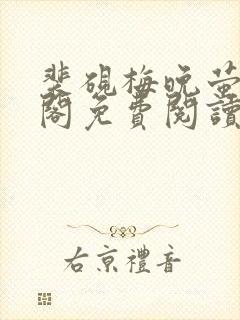 裴硯梅晚螢
閣免費閱讀
右京禮音